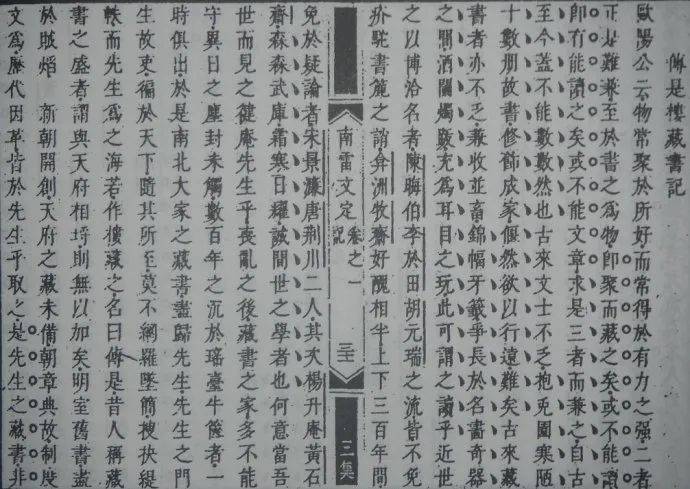 傳是樓藏書記
歐陽公云物常聚於所好而常得於有力之强二者
正是難兼至於書之爲物即聚而藏之矣或不能讀
即有能讀之矣或不能文章求是三者而兼之自古
至今蓋不能數數然也古來文士不乏抱兎園寒陋
十數册故書修飾成家偃然欲以行遠難矣古來藏
書者亦不乏兼收並畜錦幅牙籤爭長於名書奇器
之間酒闌燭跋充爲耳目之玩此可謂之讀乎近世
之以博洽名者陳晦伯李於田胡元瑞之流皆不免
疥駝書簏之誚弇洲牧齋好醜相半上下三百年間
南雷文定
卷之一
記
三集
免於疑論者宋景濂唐荆川二人其次楊升庵黄石
齋森森武庫霜寒日耀誠間世之學者也何意當吾
世而見之健庵先生乎喪亂之後藏書之家多不能
守異日之塵封未觸數百年之沉於瑤臺牛篋者一
時俱出於是南北大家之藏書盡歸先生先生之門
生故吏徧於天下隨其所至莫不網羅墜簡搜抉緹
帙而先生爲之海若作樓藏之名曰傳是昔人稱藏
書之盛者謂與天府相埒則無以加矣明室舊書盡
於賊焰 新朝開創天府之藏未備朝章典故制度
文爲歷代因革皆於先生乎取之是先生之藏書非